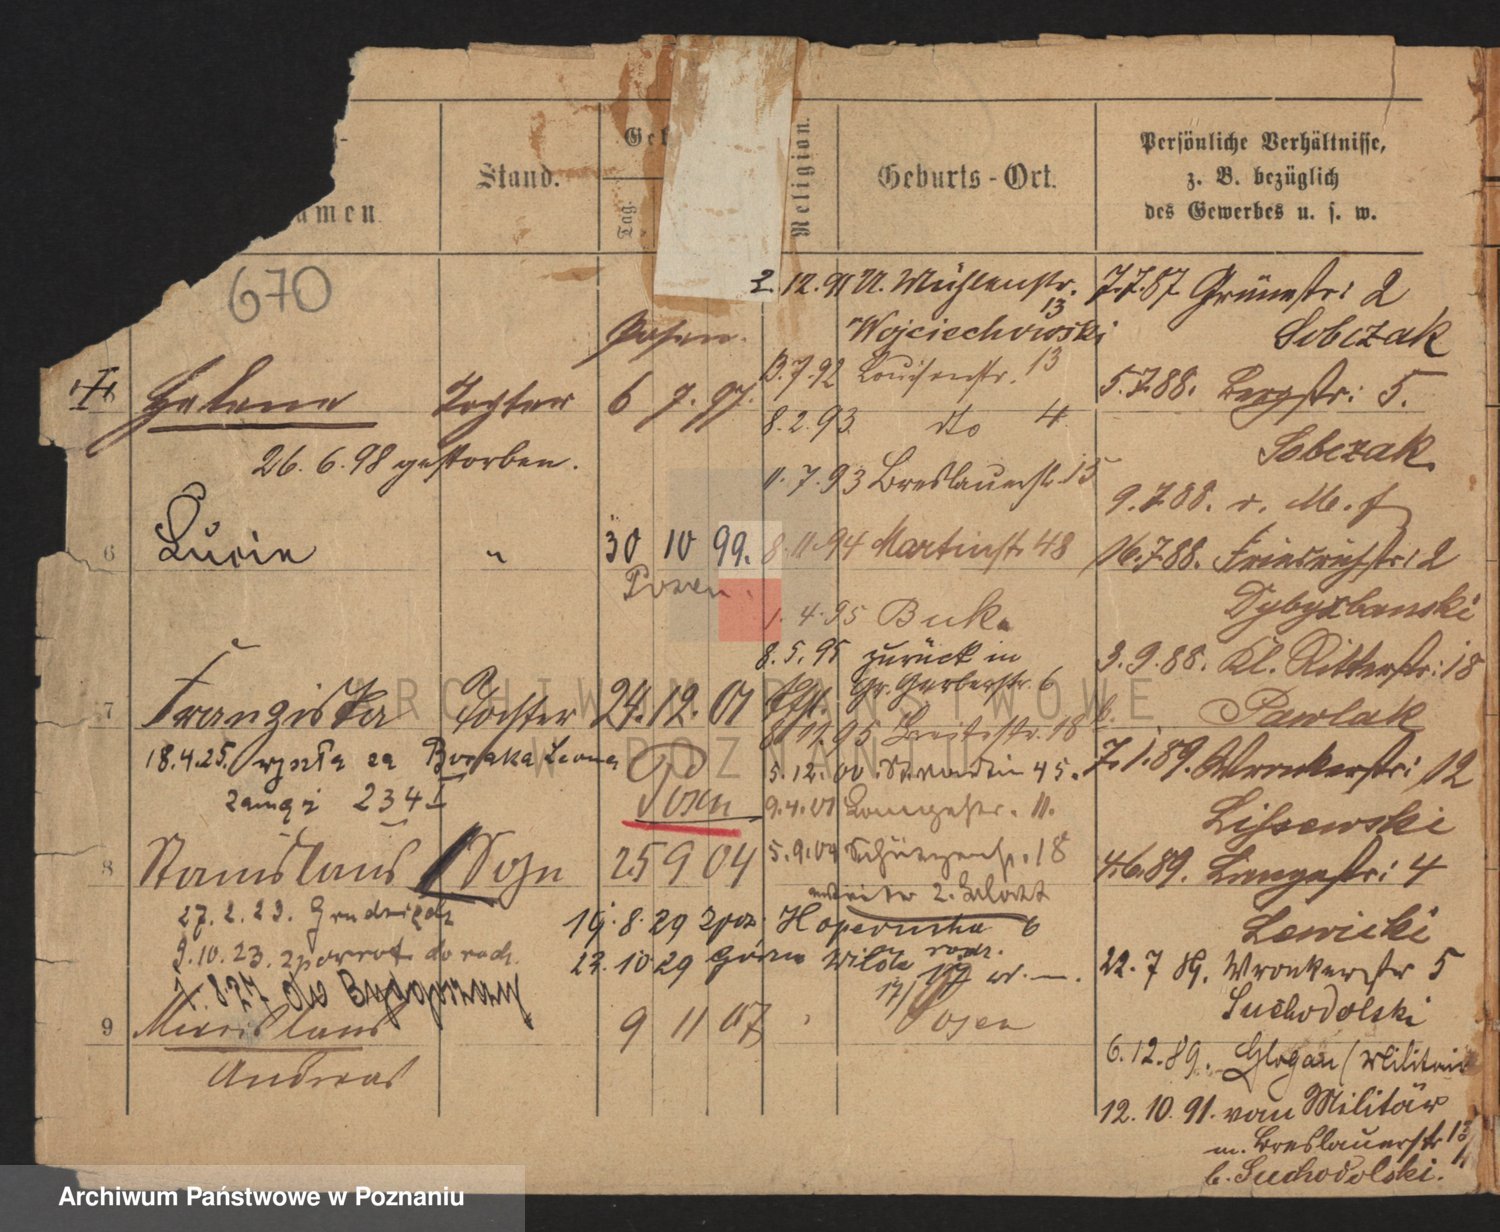 Stand.
Tag.
Religion.
Geburts-Ort.
Persönliche Verhältnisse,
z. B. bezüglich
des Gewerbes u. s. w.
amen.
670
2.12.91 U. Mühlenstr. 13
Wojciechowski
Posen.
Helene Tochter 6 7. 97.
26. 6. 98 gestorben.
13.7.92 Louisenstr. 13
8.2.93 dto 4
11.7.93 Breslauerstr. 15
6 Lucie " 30 10 99.
Posen.
8.11.94 Martinstr. 48
1.4.95 Buk.
8.5.95 zurück in
Gr. Gerberstr. 6
7 Franziska Tochter 24. 12. 01
8.11.95 Breitestr. 18
18.4.25. wyszła za Leona
234
Posen
5.12.00. St. Martin 45.
9.4.01 Langestr. 11.
8 Stanislaus Sohn 25 9 04
5.9.04 Schützenstr. 18
27.2.23. Grudziądz
9.10.23. z powrot do rodz.
19.8.29 Kopernika 6
23.10 29 Górna Wilda
do Bydgoszczy
9 9 11 07 Posen
Andreas
7.7.87 Grünestr: 2
Sobczak
5.7.88. Bergstr: 5.
Sobczak
9.7.88. v. M. f
16.7.88. Friedrichstr: 2
Dybyzbanski
3.9.88. Kl. Ritterstr: 18
b. Pawlak
7.1.89. Wronkerstr: 12
Lissewski
4.6.89. Langestr: 4
Lewicki
22. 7 89. Wronkerstr 5
Suchodolski
6.12.89. Glogau (Militair
12. 10. 91. vom Militär
m. Breslauerstr 13/14
b. Suchodolski.
ARCHIWUM PAŃSTWOWE
W POZNANIU
Archiwum Państwowe w Poznaniu